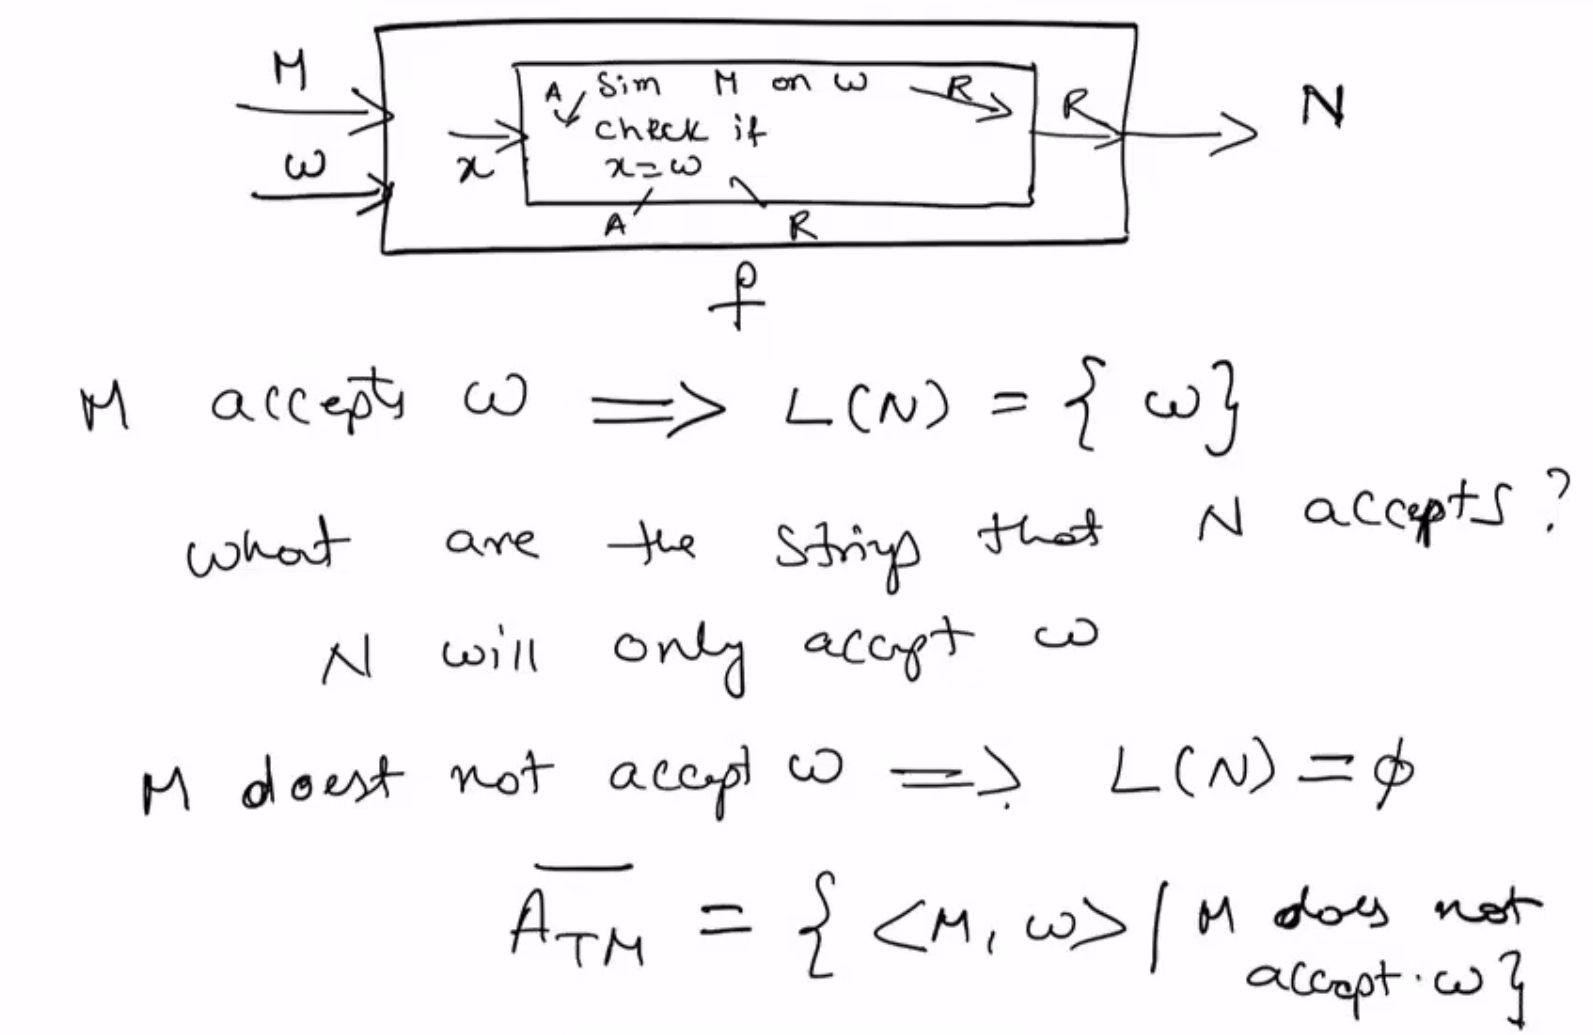 M
ω
x
A Sim M on ω R
check if
x=ω
A R
R
N
f
M accepts ω ⟹ L(N) = { ω}
what are the strings that N accepts?
N will only accept ω
M doest not accept ω ⟹ L(N) = ϕ
A̅_TM = { <M, ω> | M does not
accept. ω}